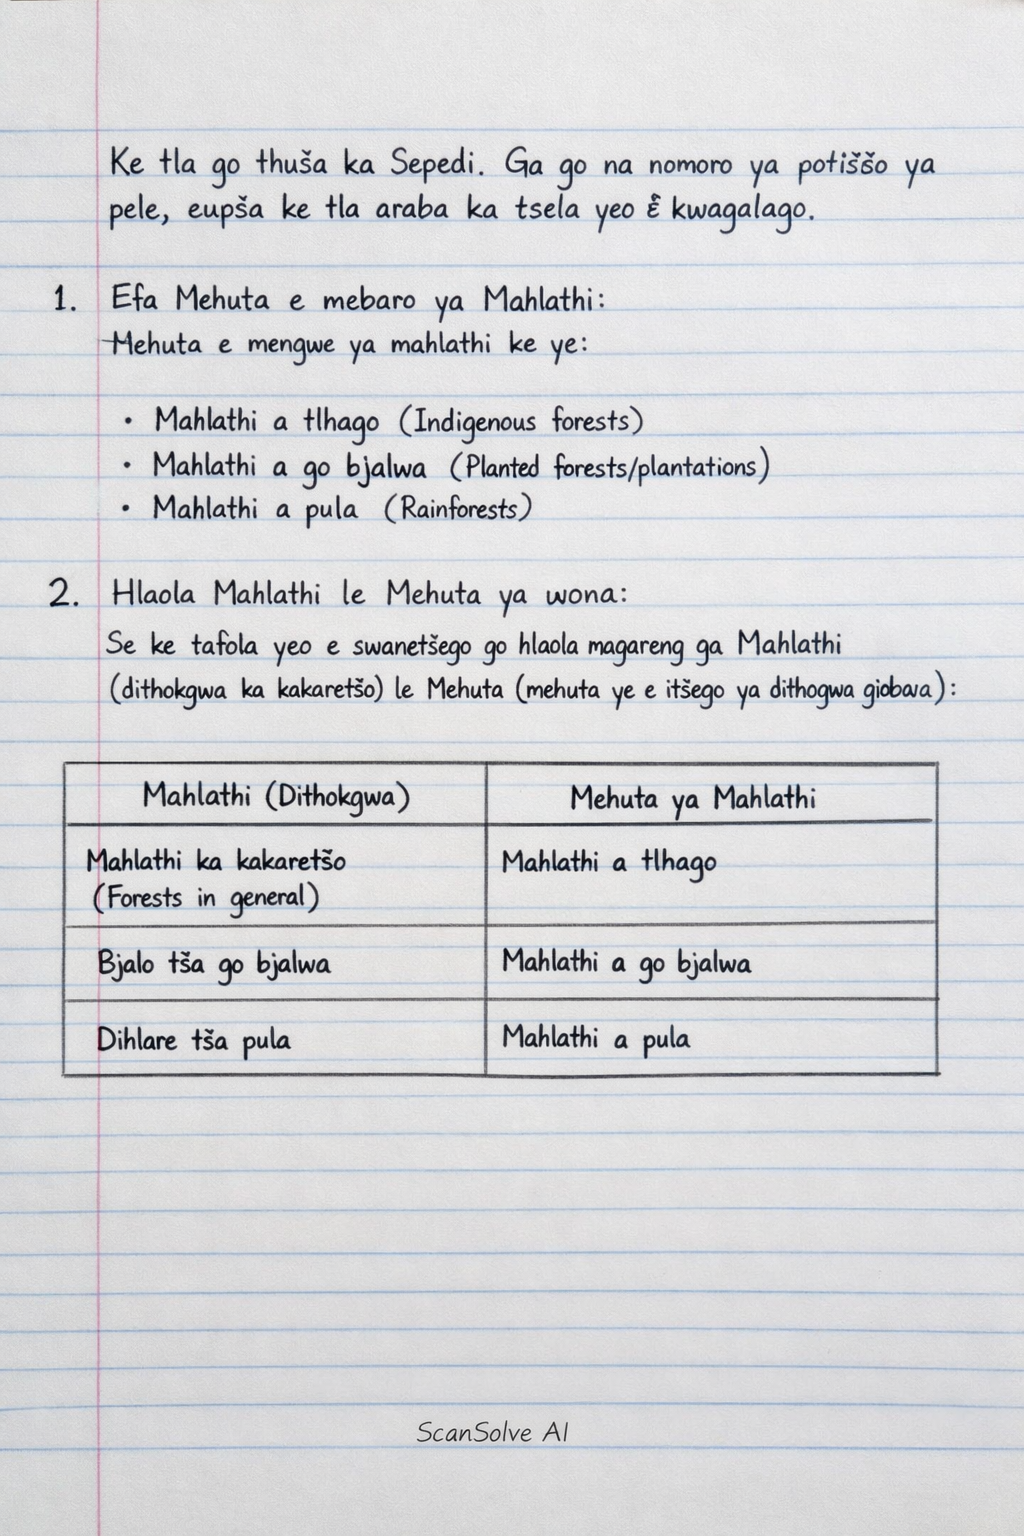 Ke tla go thuša ka Sepedi. Ga go na nomoro ya potiššo ya
pele, eupša ke tla araba ka tsela yeo kwagalago.
1. Efa Mehuta e mebaro ya Mahlathi:
Mehuta e mengwe ya mahlathi ke ye:
• Mahlathi a tlhago (Indigenous forests)
• Mahlathi a go bjalwa (Planted forests/plantations)
• Mahlathi a pula (Rainforests)
2. Hlaola Mahlathi le Mehuta ya wona:
Se ke tafola yeo e swanetšego go hlaola magareng ga Mahlathi
(dithokgwa ka kakaretšo) le Mehuta (mehuta ye e itšego ya dithogwa):
Mahlathi (Dithokgwa) Mehuta ya Mahlathi
Mahlathi ka kakaretšo Mahlathi a tlhago
(Forests in general)
Bjalo tša go bjalwa Mahlathi a go bjalwa
Dihlare tša pula Mahlathi a pula
ScanSolve AI